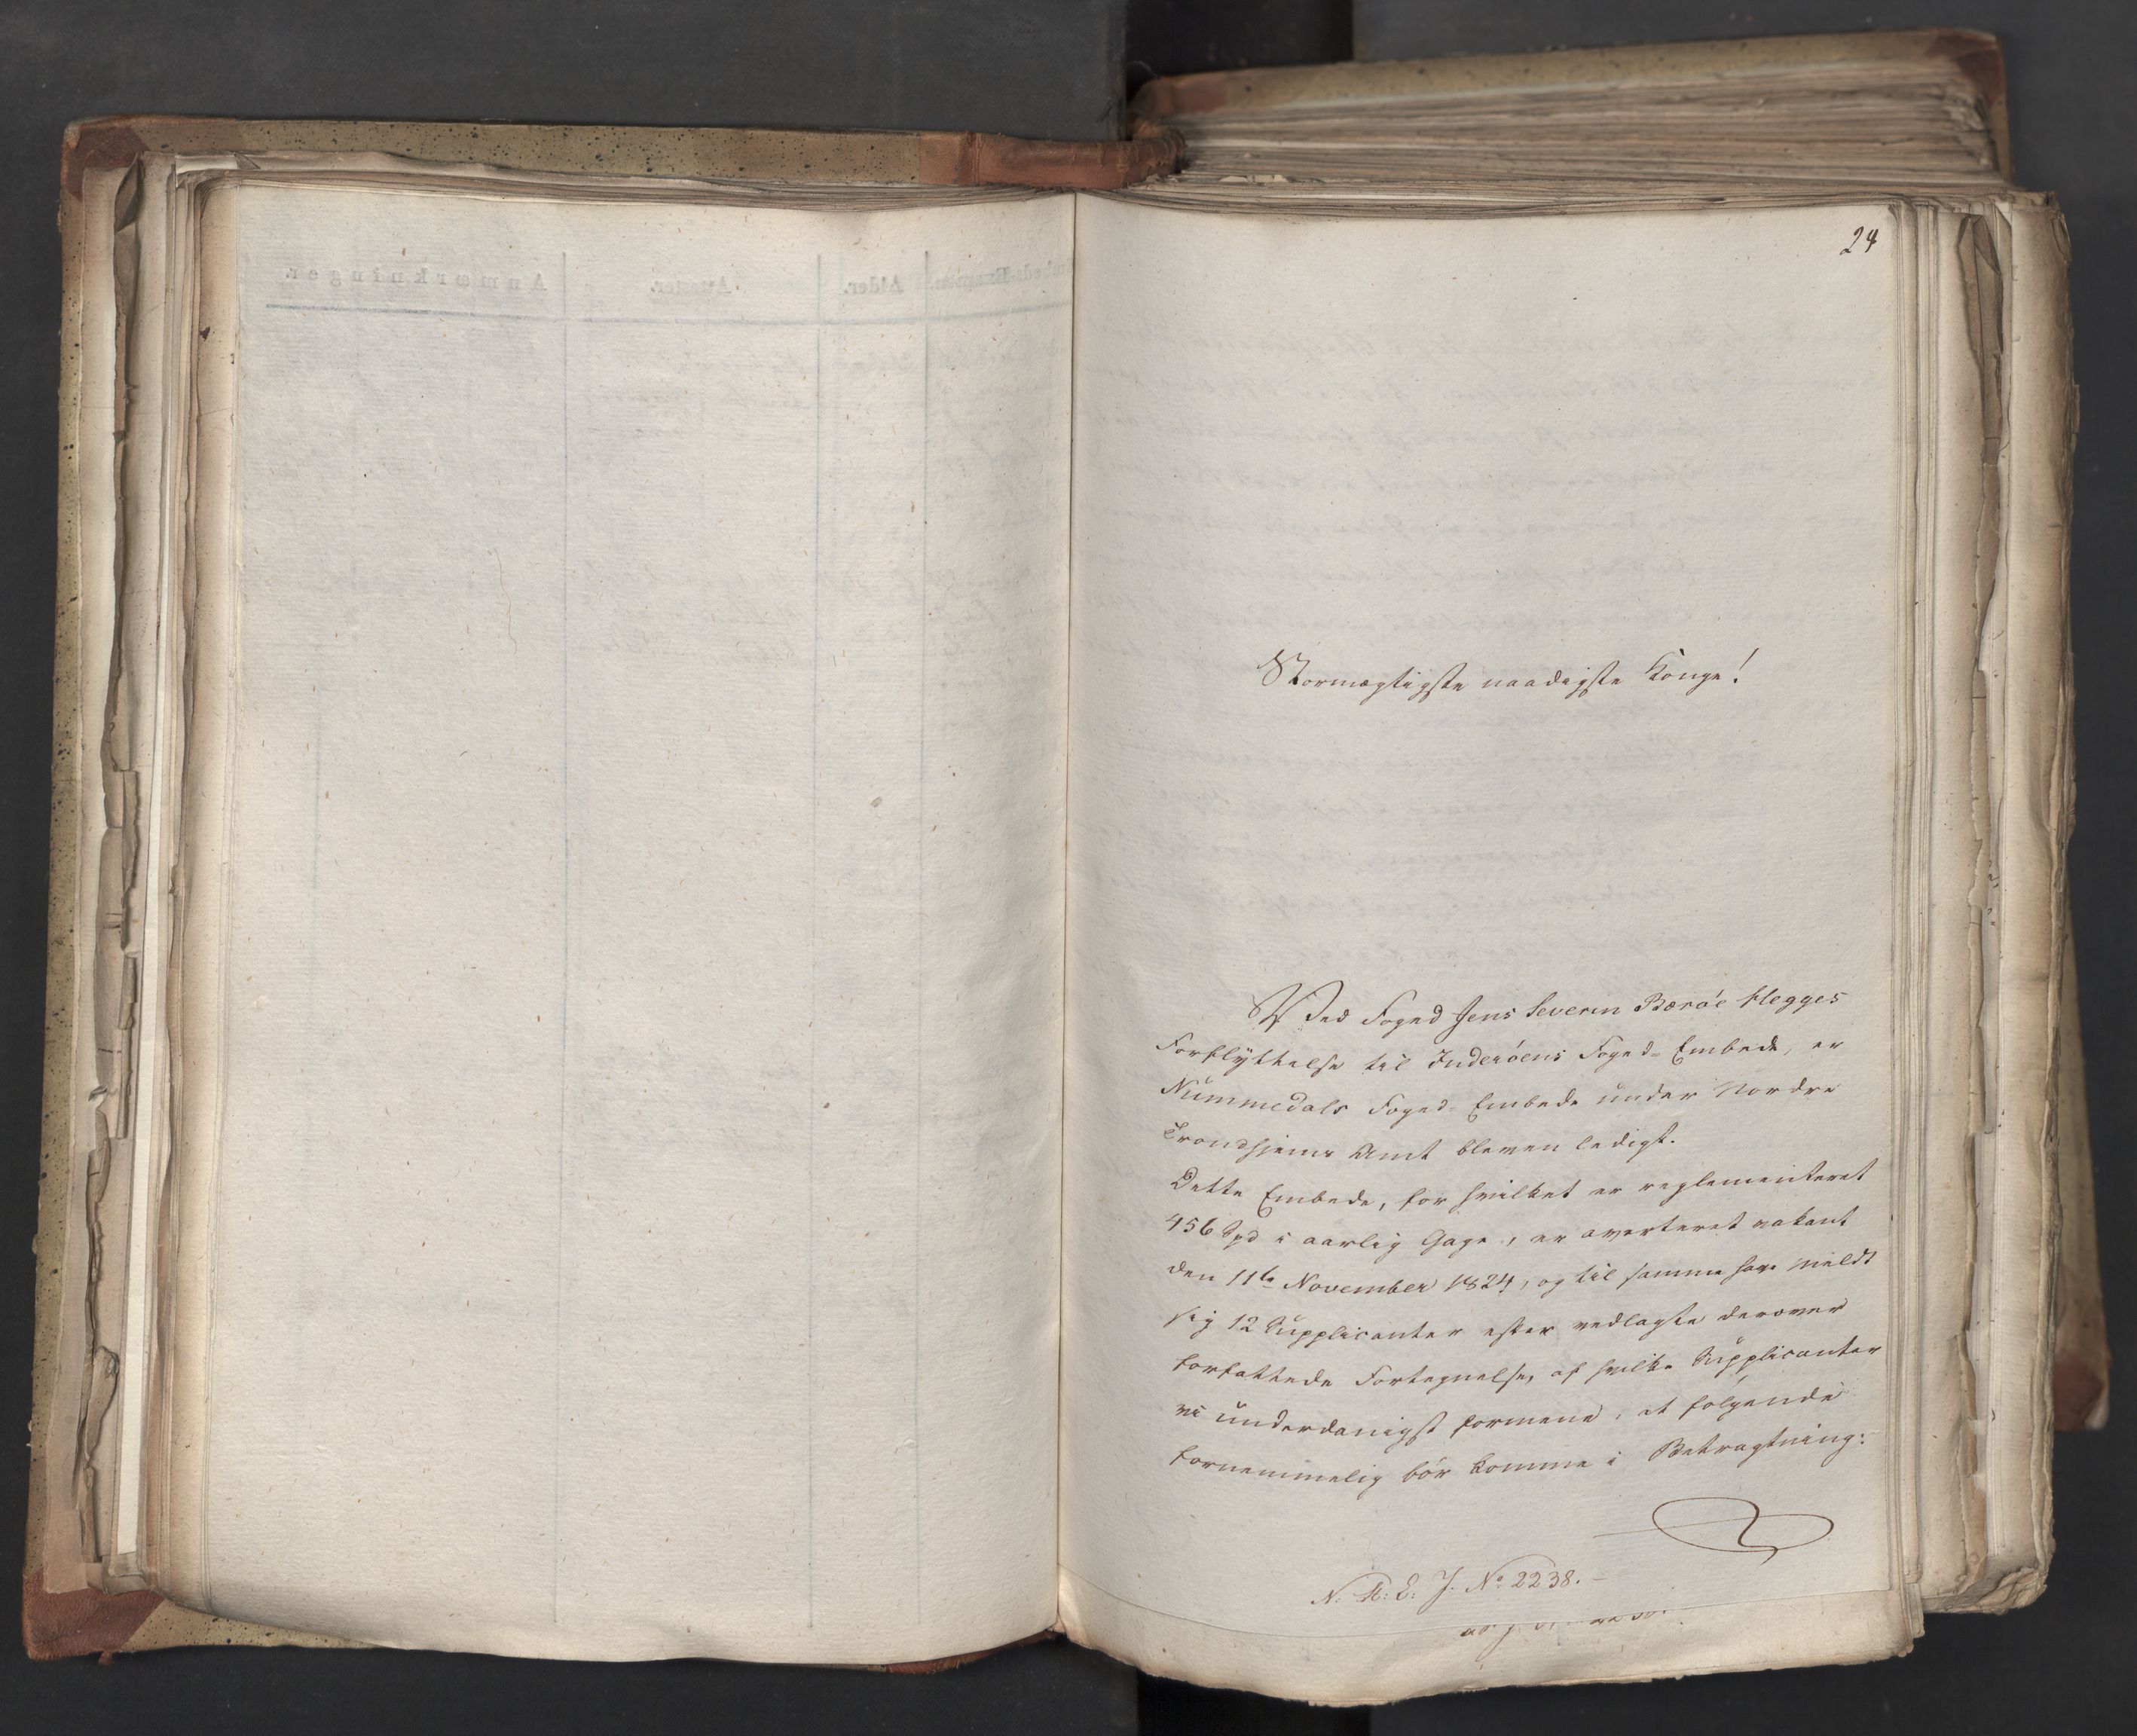 24
Stormægtigste naadigste Konge!
Ved Foged Jens Severin Bæröe Hegges
Forflyttelse til Inderöens Foged-Embede, er
Nummedals Foged-Embede under Nordre
Trondhjems Amt bleven ledigt.
Dette Embede, for hvilket er reglementeret
456 Spd i aarlig Gage, er averteret vakant
den 11te November 1824, og til samme have meldt
sig 12 Supplicanter efter vedlagte derover
forfattede Fortegnelse, af hvilke Supplicanter
vi underdanigst formene, at følgende
fornemmelig bör komme i Betragtning:
N. R: E. J. No 2238.